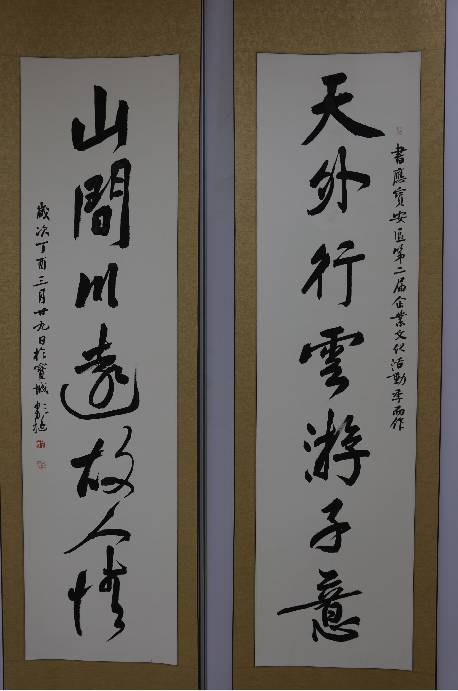 書應寶安區第二届企業文化活動季而作
天外行雲游子意
山間川遠故人情
歲次丁酉三月廿九日於寶城